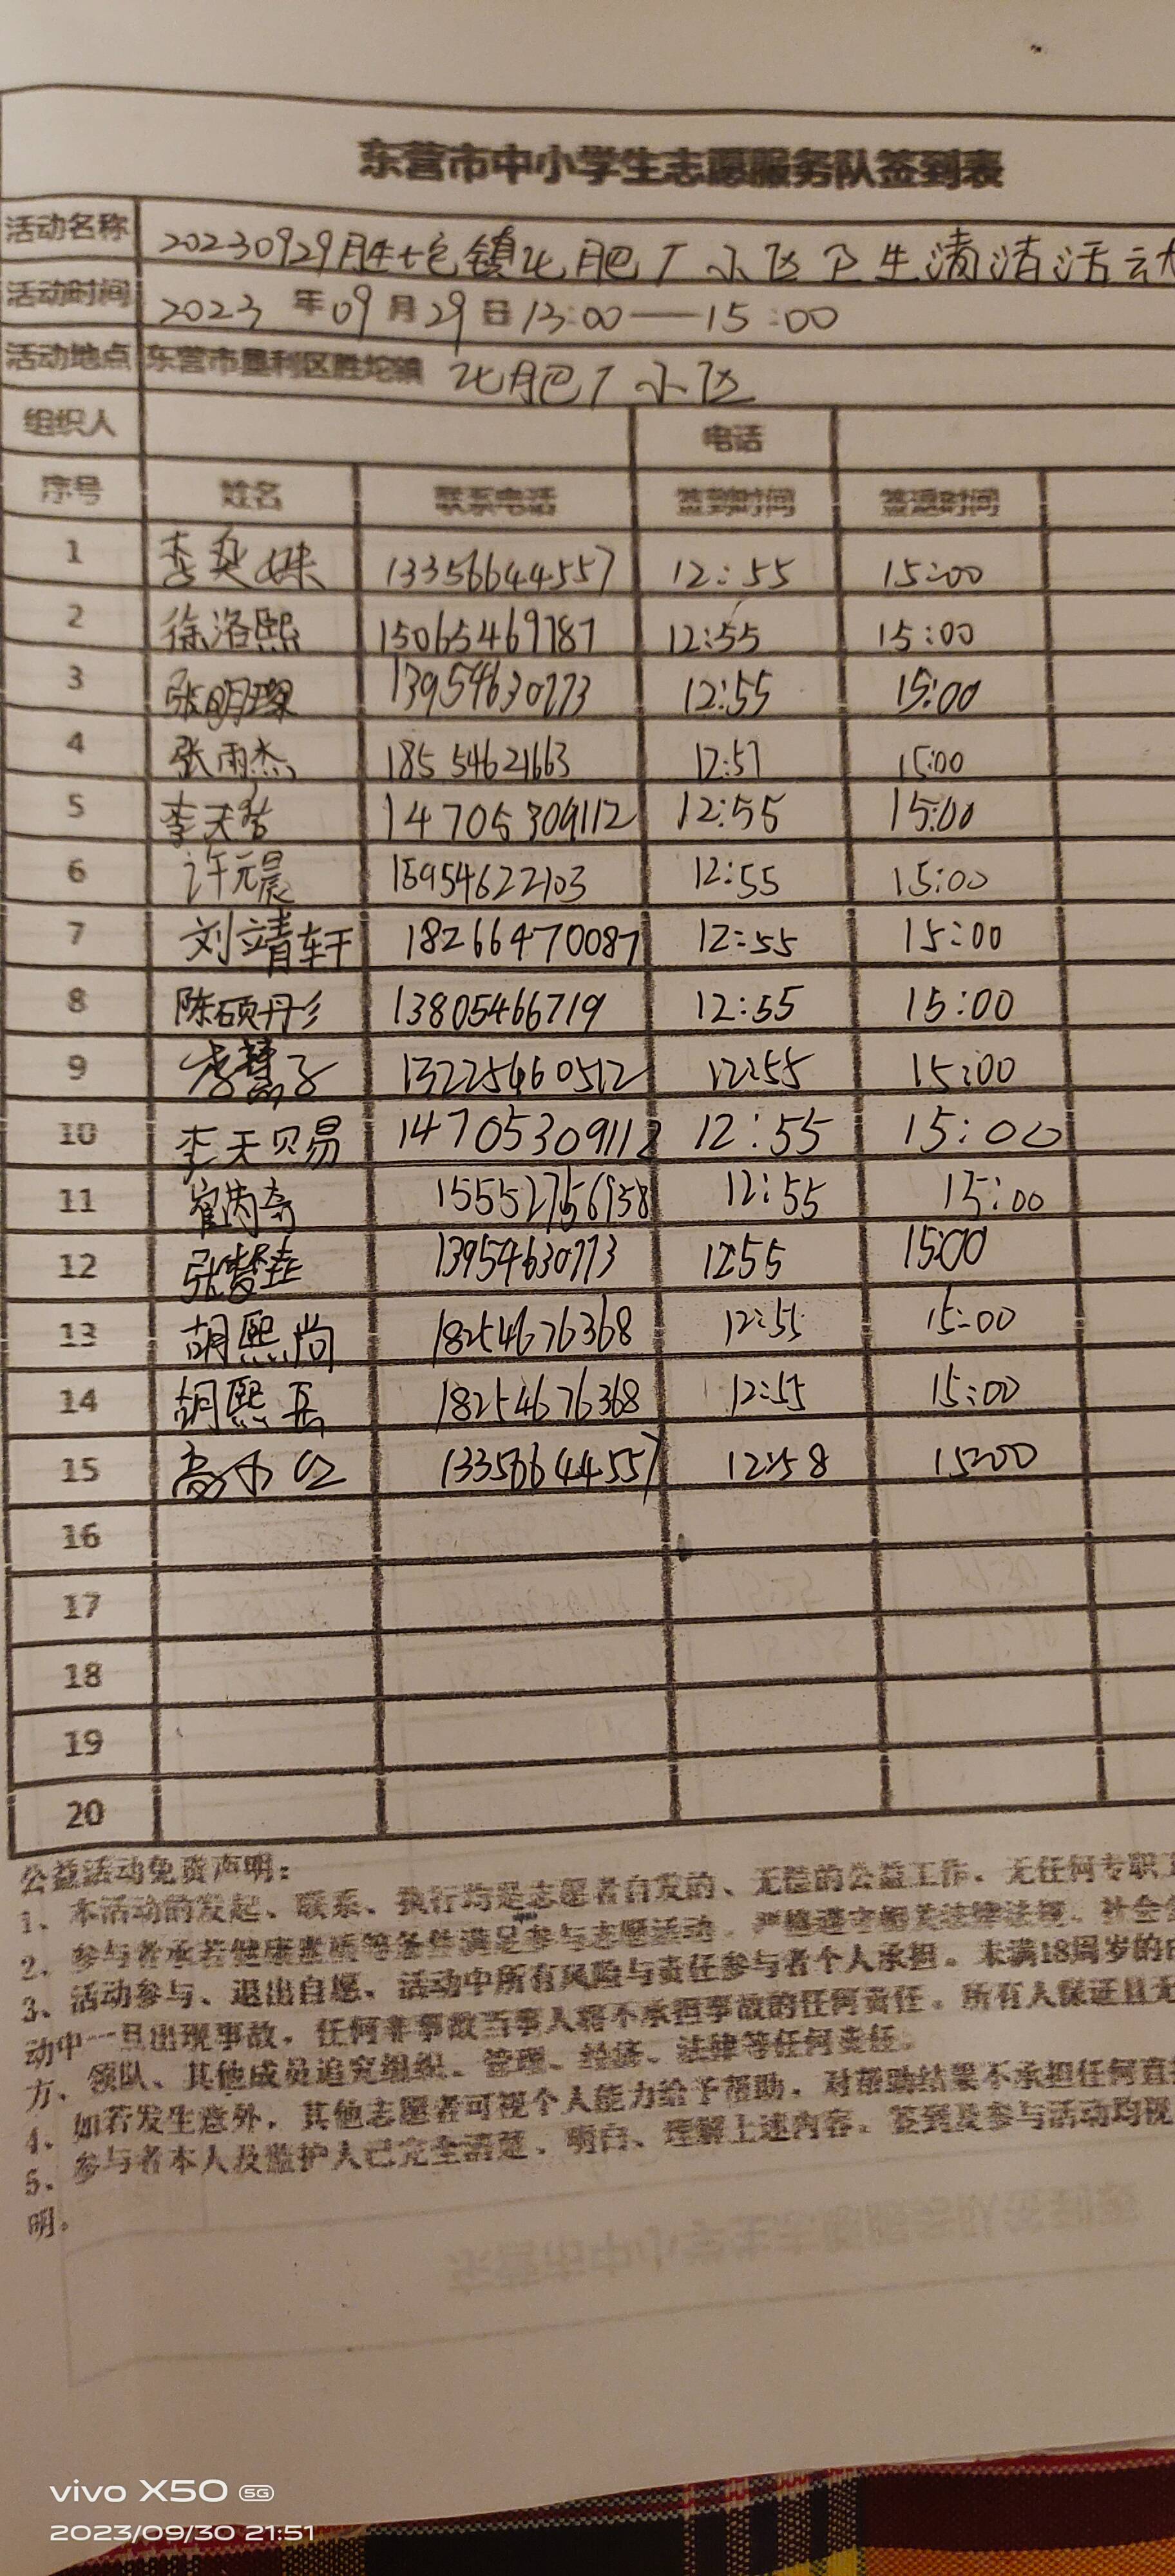 东营市中小学生志愿服务队签到表
活动名称 20230929胜坨镇化肥厂小区卫生清洁活动
活动时间 2023 年 09 月 29 日 13:00——15:00
活动地点 东营市垦利区胜坨镇 化肥厂小区
组织人 电话
序号 姓名 联系电话 签到时间 签退时间
1 李奕姝 13356644557 12:55 15:00
2 徐洛熙 15065469787 12:55 15:00
3 张明璨 13954630773 12:55 15:00
4 张雨杰 18554621663 12:57 15:00
5 李天哲 14705309112 12:55 15:00
6 许元晨 15954622103 12:55 15:00
7 刘靖轩 18266470087 12:55 15:00
8 陈硕彤 13805466719 12:55 15:00
9 李慧子 13225460512 12:55 15:00
10 李天赐 14705309112 12:55 15:00
11 崔芮奇 15552756958 12:55 15:00
12 张 13954630773 12:55 15:00
13 胡熙尚 18254676368 12:55 15:00
14 胡熙岳 18254676368 12:55 15:00
15 高 13356644557 12:58 15:00
16
17
18
19
20
公益活动免责声明：
1、本活动的发起、联系、执行均是志愿者自发的、无偿的公益工作，无任何专职
2、参与者承若健康素质等条件满足参与志愿活动，严格遵守相关法律法规，社会
3、活动参与、退出自愿，活动中所有风险与责任参与者个人承担。未满18周岁的
动中一旦出现事故，任何非事故当事人将不承担事故的任何责任。所有人保证且无
方、领队、其他成员追究组织、管理、经济、法律等任何责任。
4、如若发生意外，其他志愿者可视个人能力给予帮助，对帮助结果不承担任何直
5、参与者本人及监护人已完全清楚、明白、理解上述内容。签到及参与活动均视
明。
vivo X50 5G
2023/09/30 21:51